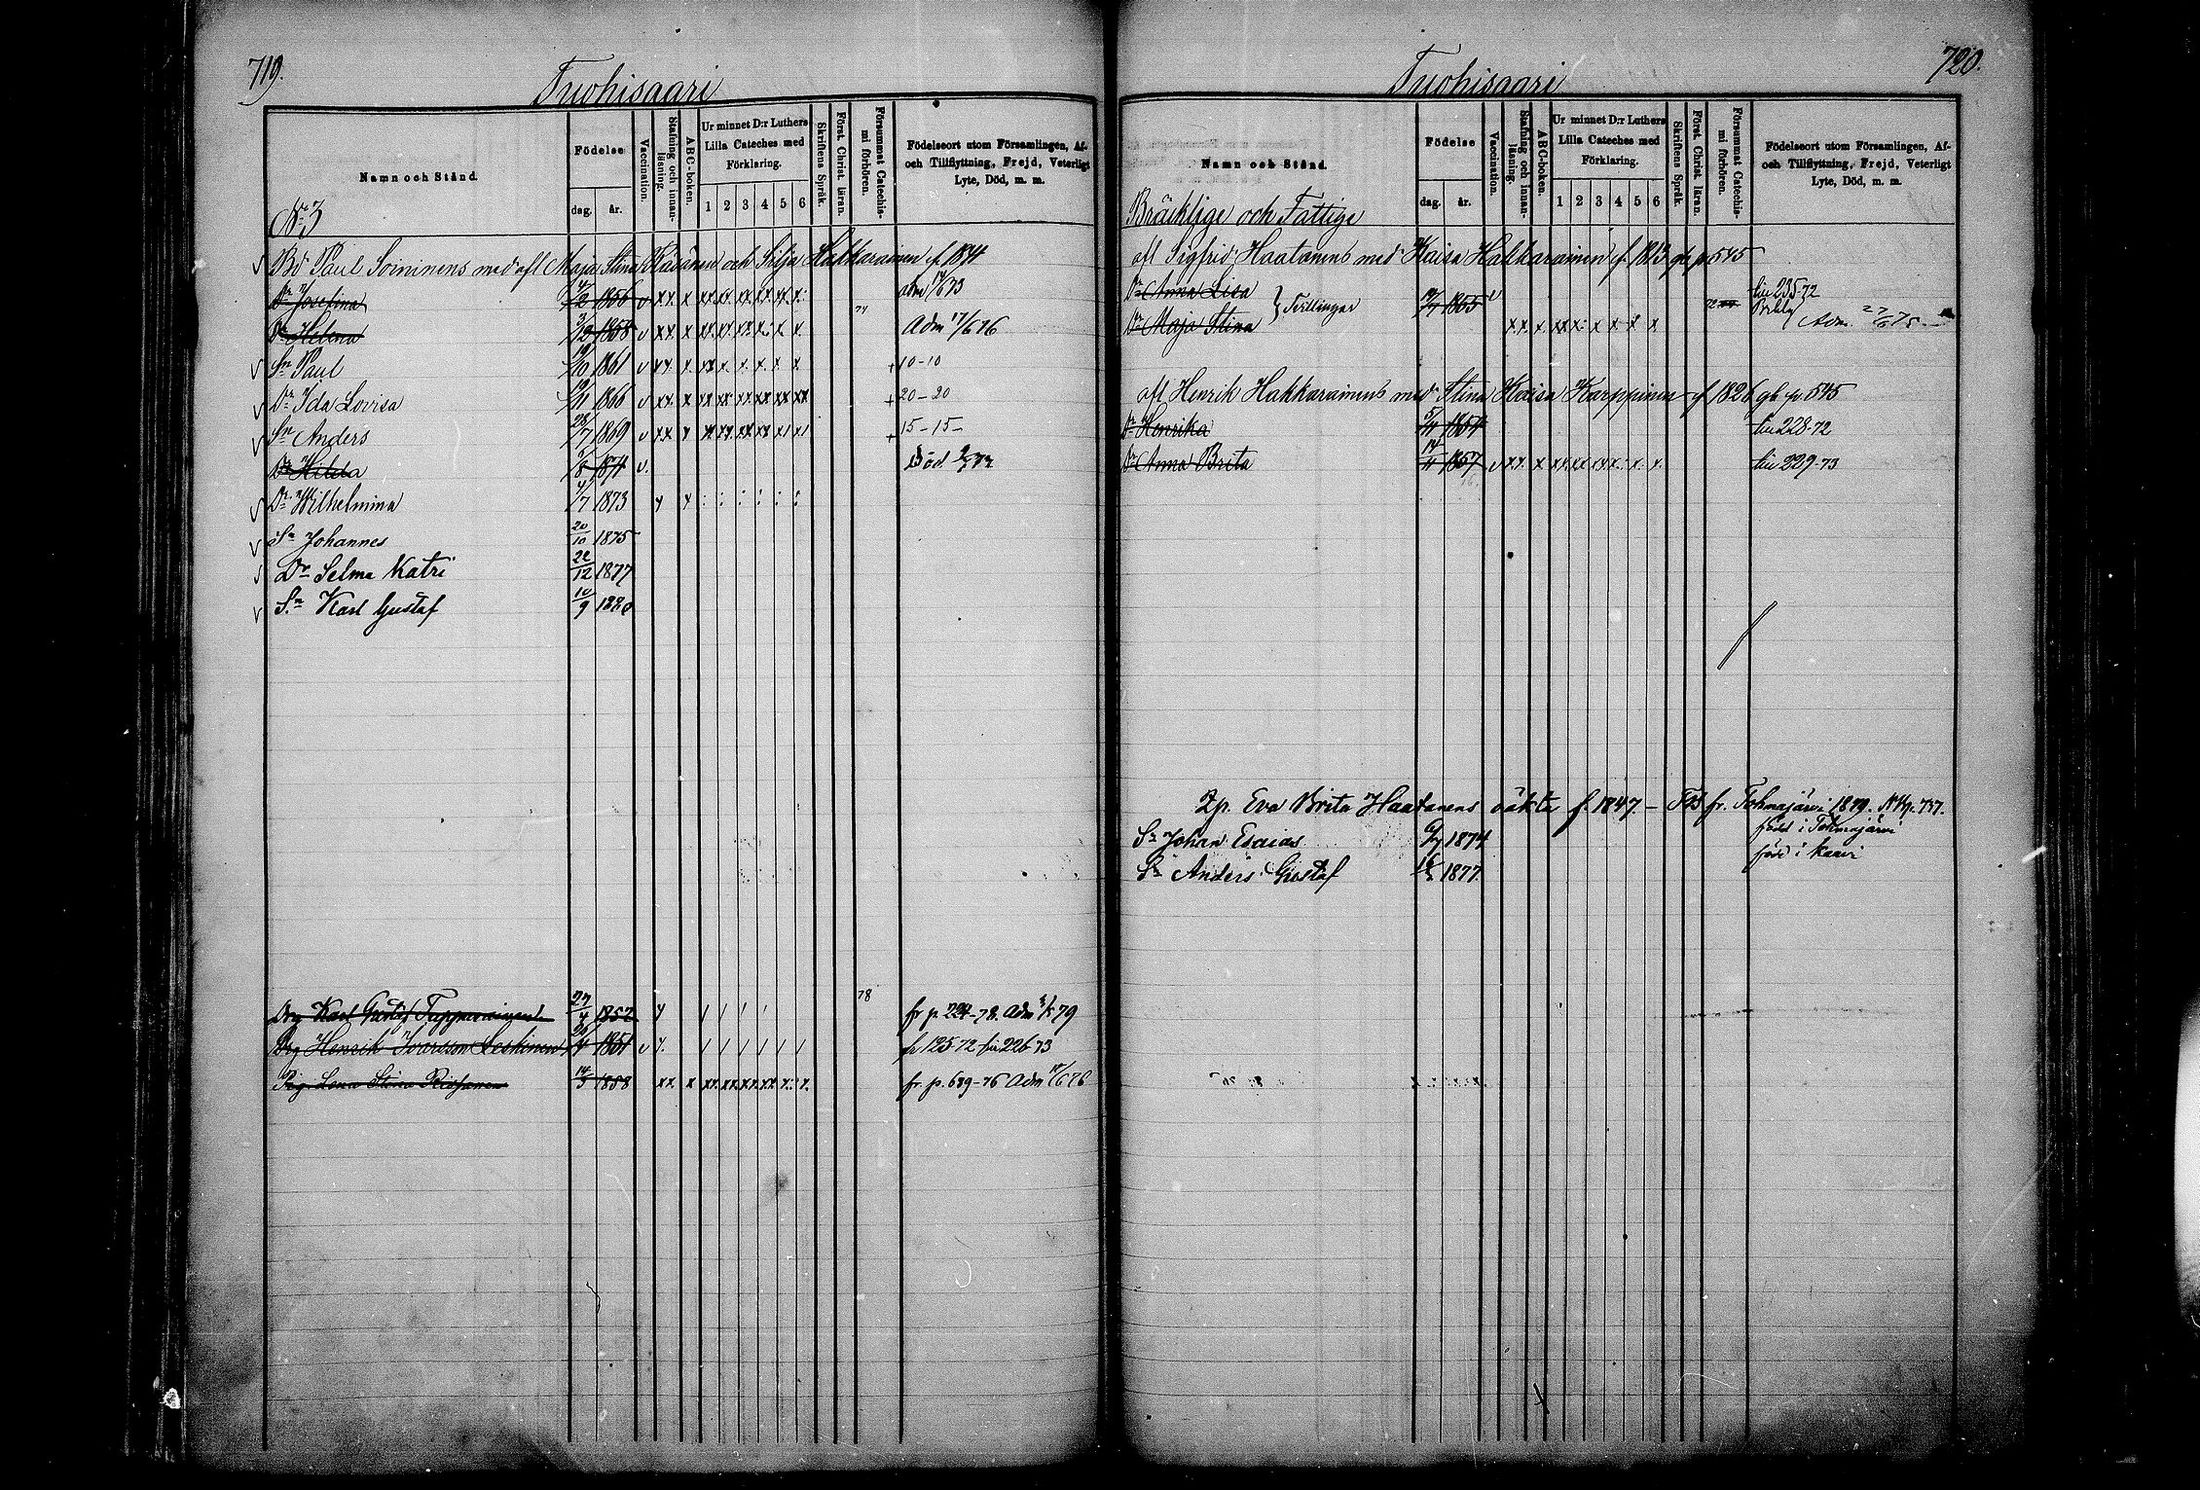 719.
Tuohisaari
Namn och Stånd.
Födelse
dag. år.
Vaccination.
Stafning och innanläsning.
ABC-boken.
Ur minnet D:r Luthers
Lilla Cateches med
Förklaring.
1 2 3 4 5 6
Skriftens Språk.
Först. Christ. läran.
Försummat Catechismi förhören.
Födelseort utom Församlingen, Af-
och Tillflyttning, Frejd, Veterligt
Lyte, Död, m. m.
No 3
Bd Paul Soininens med afl Maja Stina Räsänen och Silja Hakkarainen f. 1844
Dr Josefina 1856 v xx x xx xx xx xx xx x adm 73
Dr Helena 1858 v xx x Adm 17/6 76
Sn Paul 19/10 1861 v xx x xx x x x x x 10-10
Dr Ida Lovisa 19/11 1866 v xx x xx xx xx xx xx xx 20-20
Sn Anders 28/7 1869 v xx x 15-15-
Dr Hilda v. Död
Dr Wilhelmina 4/7 1873 x x : : : : : :
Sn Johannes 20/10 1875
Dr Selma Katri 22/12 1877
Sn Karl Gustaf 10/9 1880
78
Drg Karl Gustaf 27/4 1852 fr p 224-78. Adm 79
Drg Henrik Ivarsson Leskinen 1851 v fr 125-72 fn 226-73
Pig Lena Stina 14/3 1858 xx x xx xx xx xx x. x. fr. p. 689-76 Adm 17/6 76
720.
Tuohisaari
Namn och Stånd.
Födelse
dag. år.
Vaccination.
Stafning och innanläsning.
ABC-boken.
Ur minnet D:r Luthers
Lilla Cateches med
Förklaring.
1 2 3 4 5 6
Skriftens Språk.
Först. Christ. läran.
Försummat Catechismi förhören.
Födelseort utom Församlingen, Af-
och Tillflyttning, Frejd, Veterligt
Lyte, Död, m. m.
Bräcklige och Fattige
afl Sigfrid Haatanens med Kaisa Hakkarainen f. 1813 gb p 545
Dr Anna Lisa } Tvillingar 1855 v 235 72
Dr Maja Stina xx x xx x x x x x Adm. 27/6 75
afl Henrik Hakkarainens med Stina Kaisa Karppinen f 1826 gb p 545
Dr Henrika 1854 228-72
Dr Anna Brita 14/11 1857 v xx x xx xx xx x x x 229-73
Lp. Eva Brita Haatanens oäkta f. 1847. - fr. Tohmajärvi 1879. N Kp. 737.
Sn Johan Esaias 1874 född i Tohmajärvi
Sn Anders Gustaf 1877. född i Kaavi